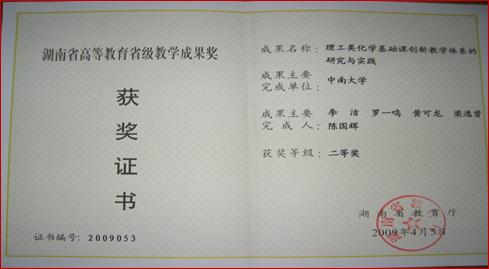 湖南省高等教育省级教学成果奖
获
奖
证
书
证书编号：2009053
成果名称：理工类化学基础课创新教学体系的
研究与实践
成果主要
完成单位：中南大学
成果主要 李 洁 罗一鸣 黄可龙 梁逸曾
完 成 人：陈国辉
获奖等级：二等奖
湖南省教育厅
2009年4月3日